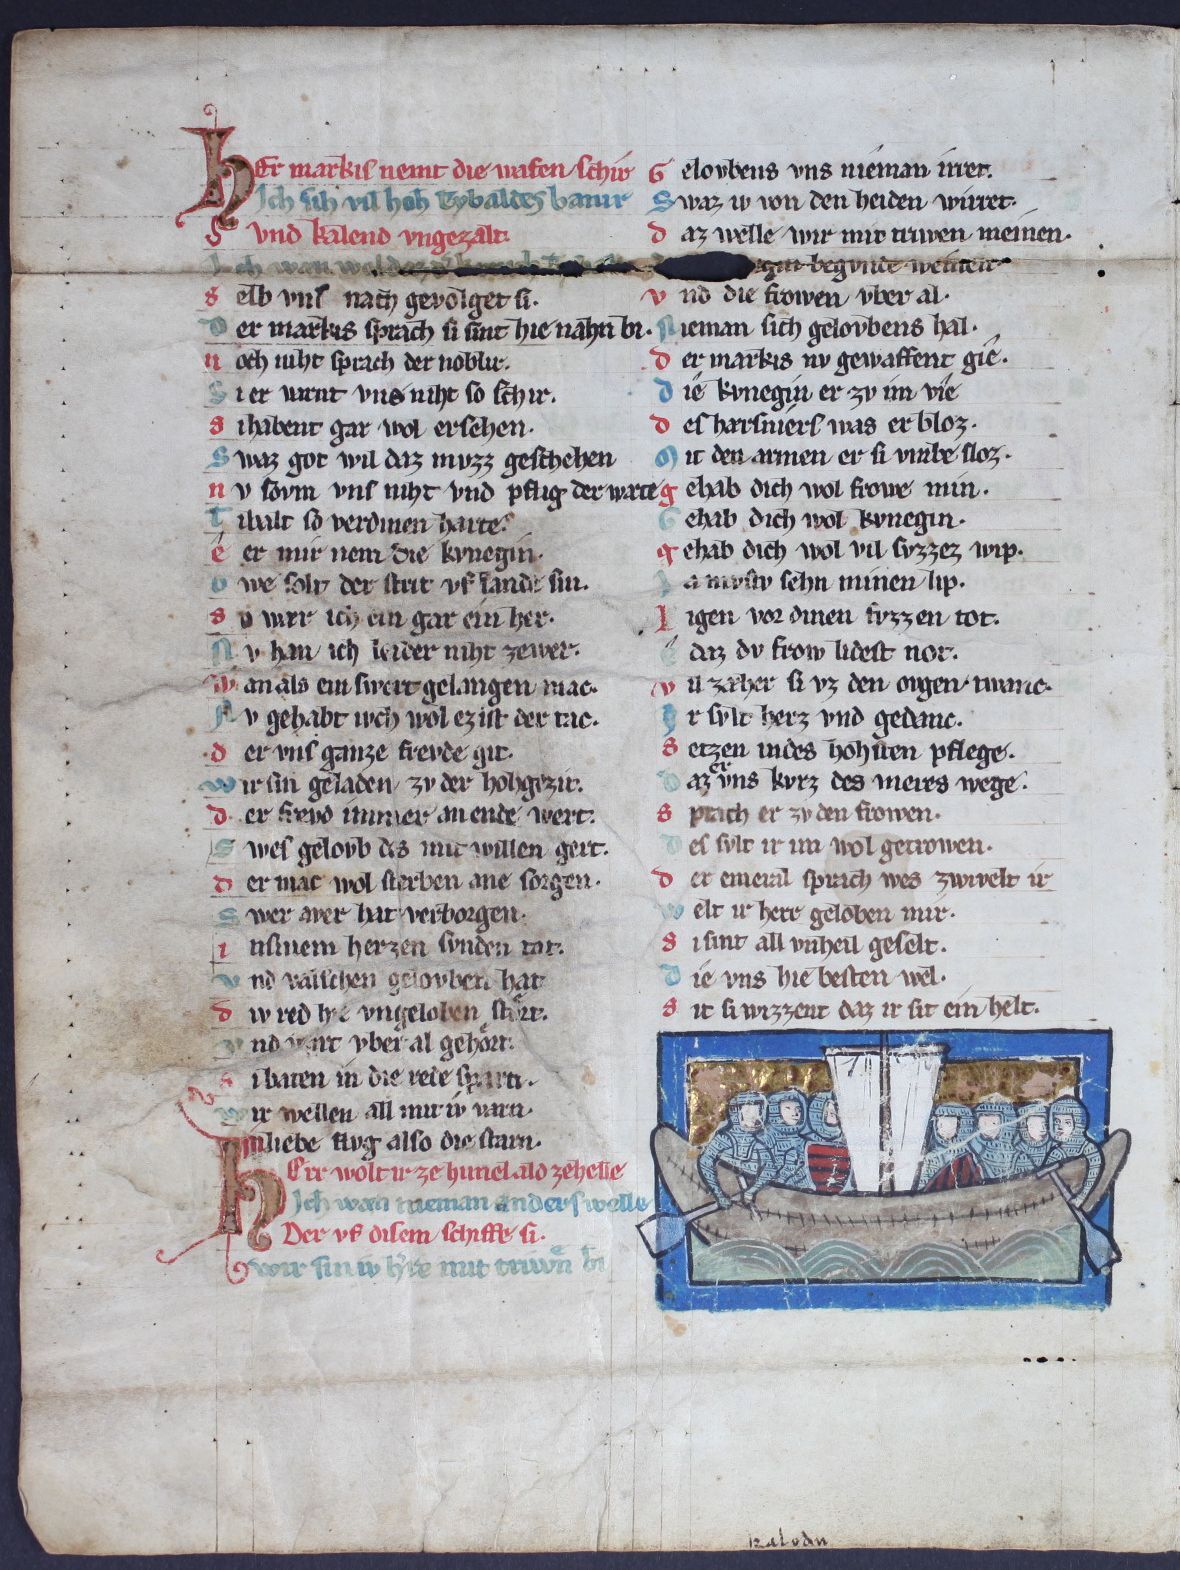 HEr markis nemt die wafen schir
Ich sih vil hoh Tybaldes banir
S vnd kalend vngezalt.
Ich wan
s elb vns nach gevolget si.
D er markis sprach si sint hie nahn bi.
n och niht sprach der noblir.
S i er virnt vns niht so schir.
s i habent gar wol ersehen.
S waz got wil daz mvzz geschehen
n v sovm vns niht vnd pflig der warte
T ibalt so verdinen harte.
e er mir nem die kvnegin.
O we solt der strit vf lande sin.
s o wer ich ein gar ein her.
N v han ich leider niht ze wer.
w an als ein swert gelangen mac.
N v gehabt wch wol ez ist der tac.
d er vns ganze frevde git.
W ir sin geladen zv der hohgezit.
d er frevd immer an ende wert.
S wes gelovb des mit willen gert.
d er mac wol sterben ane sorgen.
S wer aver hat verborgen.
i n sinem herzen svnden tat.
V nd valschen gelovben hat
d iv red hie vngeloben stort.
V nd wirt vber al gehort.
s i baten in die rede sparn.
W ir wellen all mit iv varn.
in liebe flvg also die starn.
HErr wolt ir ze himel ald ze helle
Ich wan nieman anders welle
Der vf disem schiffe si.
wir sin iv hie mit triwen bi
G elovbens vns nieman irret.
S waz iv von den heiden wirret.
d az welle wir mit triwen meinen.
begvnde weinen
v nd die frowen vber al.
N ieman sich gelovbens hal.
d er markis nv gewaffent gie.
D ie kvnegin er zv im vie
d es harsniers was er bloz.
M it den armen er si vmbe sloz.
g ehab dich wol frowe min.
G ehab dich wol kvnegin.
g ehab dich wol vil svzzez wip.
I a mvstv sehn minen lip.
l igen vor dinen fvzzen tot.
E daz dv frow lidest not.
v il zaher si vz den ovgen twanc.
I r svlt herz vnd gedanc.
s etzen in des hohsten pflege.
D az er vns kvrz des meres wege.
s prach er zv den frowen.
D es svlt ir im wol getrowen.
d er emeral sprach wes zwivelt ir
W elt ir herr geloben mir.
s i sint all vnheil geselt.
D ie vns hie besten wel.
s it si wizzent daz ir sit ein helt.